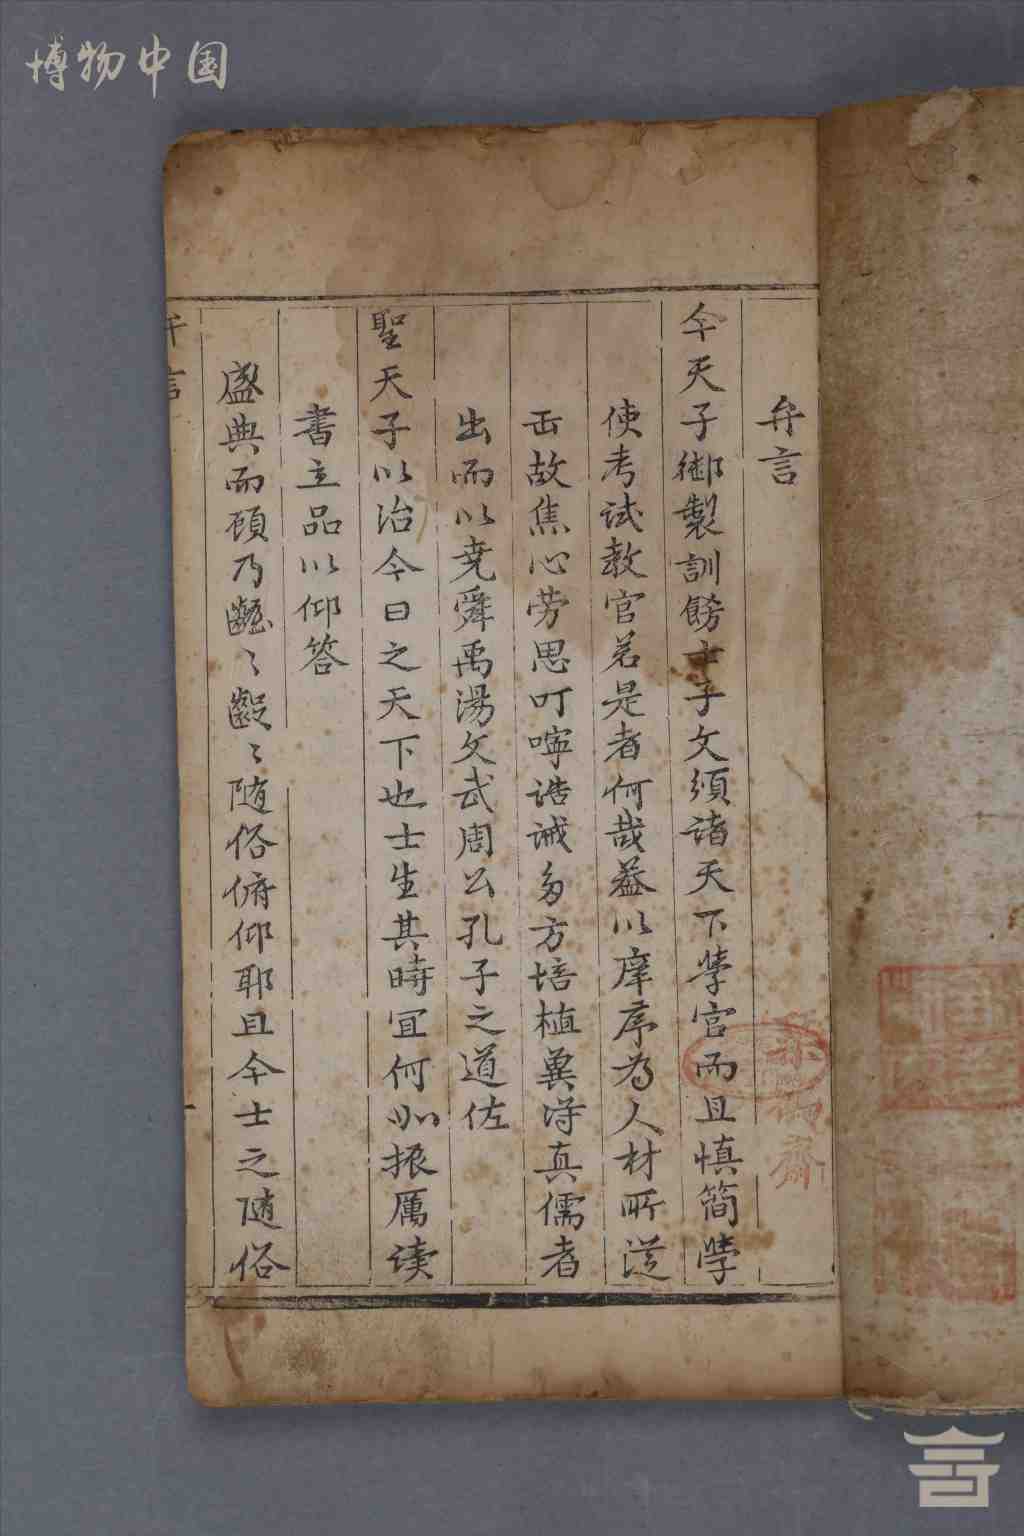 博物中国
弁言
今天子御製訓餙士子文頒諸天下學宮而且慎簡學
使考試教官若是者何哉葢以庠序為人材所從
出故焦心劳思叮嚀诰诫多方培植兾得真儒者
出而以尭舜禹湯文武周公孔子之道佐
聖天子以治今日之天下也士生其時宜何如振厲读
書立品以仰答
盛典而顾乃齷〻齪〻随俗俯仰耶且今士之随俗
弁言
齋